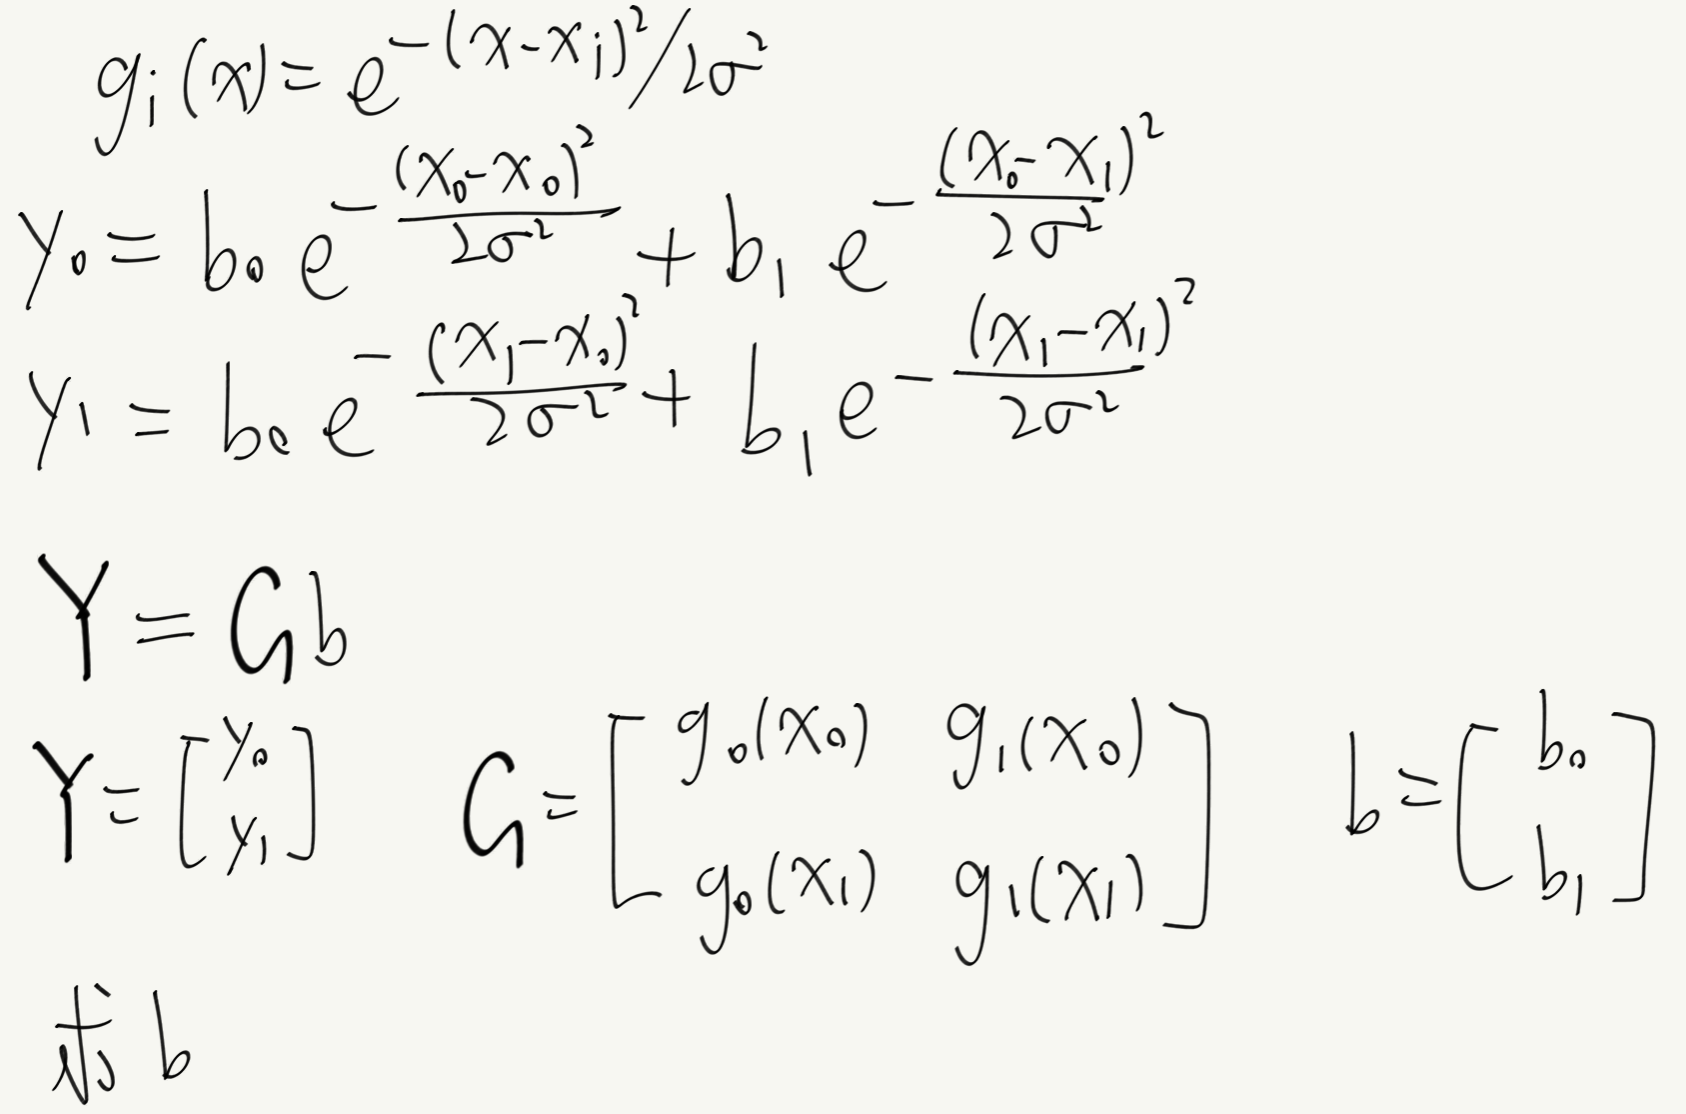 gᵢ(x) = e^{-(x-xᵢ)²/2σ²}
y₀ = b₀ e^{-\frac{(x₀-x₀)²}{2σ²}} + b₁ e^{-\frac{(x₀-x₁)²}{2σ²}}
y₁ = b₀ e^{-\frac{(x₁-x₀)²}{2σ²}} + b₁ e^{-\frac{(x₁-x₁)²}{2σ²}}
Y = Gb
Y = [y₀ ; y₁] G = [g₀(x₀) g₁(x₀) ; g₀(x₁) g₁(x₁)] b = [b₀ ; b₁]
求 b